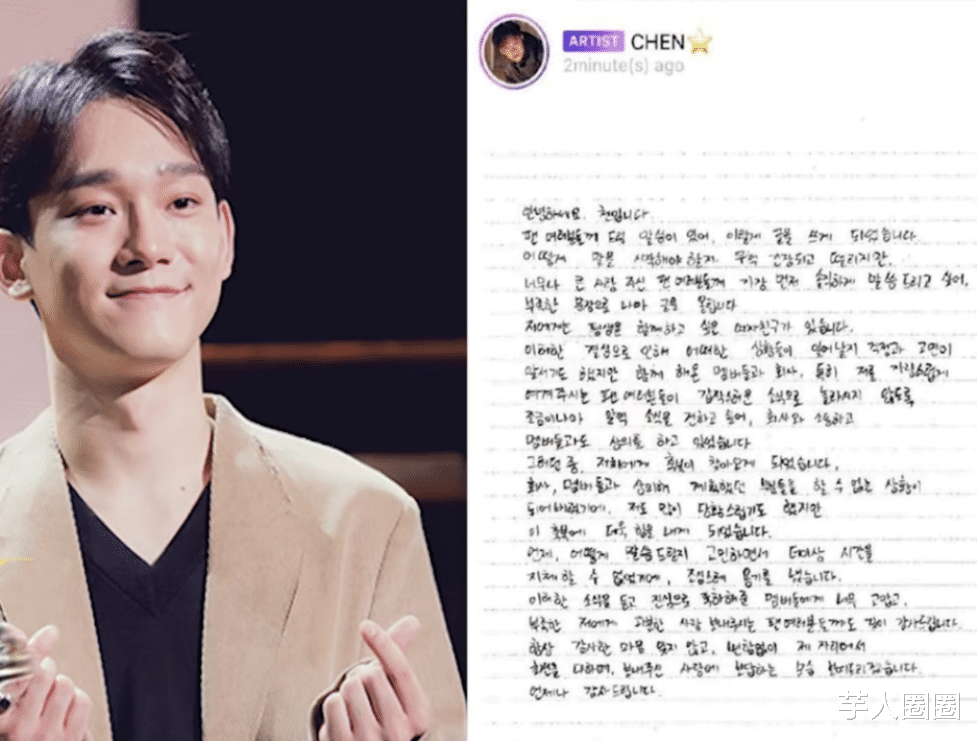 ARTIST CHEN
2minute(s) ago
안녕하세요. 첸입니다
팬 여러분들께 드릴 말씀이 있어, 이렇게 글을 쓰게 되었습니다.
어떻게 말을 시작해야 할지 무척 긴장되고 떨리지만,
너무나 큰 사랑 주신 팬 여러분들께 가장 먼저 솔직하게 말씀드리고 싶어,
부족한 문장으로 나마 글을 올립니다
저에게는 평생을 함께하고 싶은 여자친구가 있습니다.
이러한 결심으로 인해 어떠한 상황들이 일어날지 걱정과 고민이
앞서기도 했지만 함께 해온 멤버들과 회사, 특히 저를 자랑스럽게
여겨주시는 팬 여러분들이 갑작스러운 소식으로 놀라시지 않도록
조금이나마 일찍 소식을 전하고 싶어, 회사와 소통하고
멤버들과도 상의를 하고 있었습니다
그러던 중, 저희에게 축복이 찾아오게 되었습니다.
회사, 멤버들과 상의해 계획했던 부분들을 할 수 없는 상황이
되어버렸기에, 저도 많이 당황스럽기도 했지만
이 축복에 더욱 힘을 내게 되었습니다.
언제, 어떻게 말씀드릴지 고민하면서 더이상 시간을
지체할 수 없었기에, 조심스레 용기를 냈습니다.
이러한 소식을 듣고 진심으로 축하해준 멤버들에게 너무 고맙고,
부족한 저에게 과분한 사랑 보내주시는 팬 여러분들께도 깊이 감사드립니다.
항상 감사한 마음 잊지 않고, 변함없이 제 자리에서
최선을 다하며, 보내주신 사랑에 보답하는 모습 보여드리겠습니다.
언제나 감사드립니다.
芋人圈圈